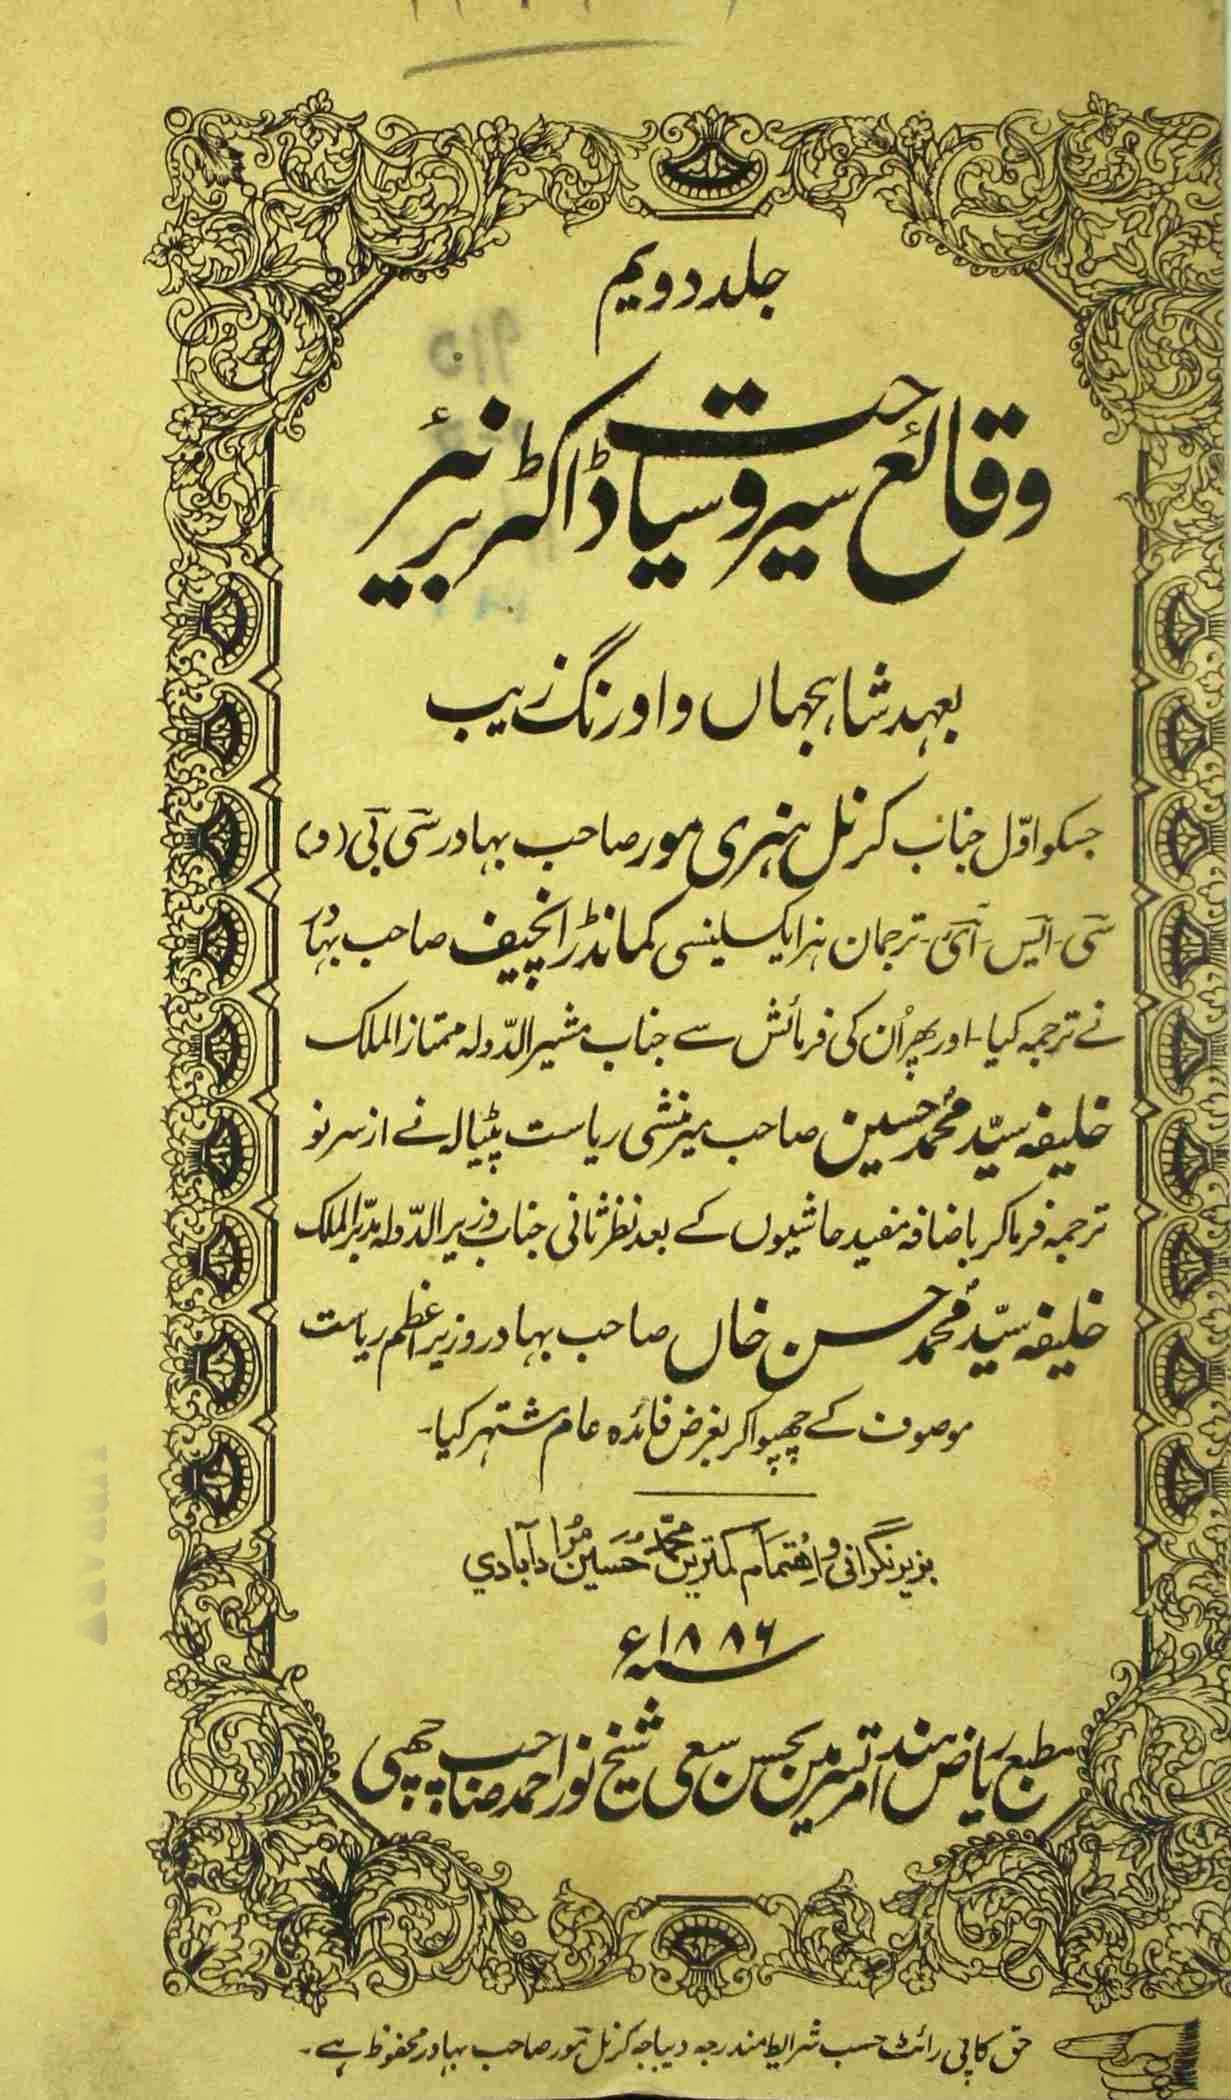 جلد دویم
وقائع سیر و سیاحت ڈاکٹر برنیئر
بعہد شاہجہاں و اورنگ زیب
جسکو اوّل جناب کرنل ہنری مور صاحب بہادر سی بی (و)
سی ـ ایس ـ آئی ـ ترجمان ہز ایکسلینسی کمانڈر انچیف صاحب بہادر
نے ترجمہ کیا ـ اور پھر اُن کی فرمائش سے جناب مشیر الدّولہ ممتاز الملک
خلیفہ سیّد محمد حسین صاحب میر منشی ریاست پٹیالہ نے از سر نو
ترجمہ فرما کر باضافہ مفید حاشیوں کے بعد نظر ثانی جناب وزیر الدّولہ مدبّر الملک
خلیفہ سیّد محمد حسن خاں صاحب بہادر وزیر اعظم ریاست
موصوف کے چھپوا کر بغرض فائدہ عام مشتہر کیا ـ
بزیر نگرانی و اہتمام کمترین محمد حسین مراد آبادی
۱۸۸۶ء
مطبع ریاض ہند امرتسر میں بحسن سعی شیخ نور احمد صاحب چھپی
حق کاپی رائٹ حسب شرایط مندرجہ دیباجہ کرنل مور صاحب بہادر محفوظ ہے ـ